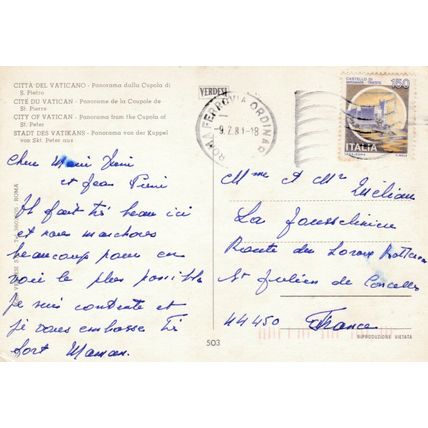 CITTÀ DEL VATICANO - Panorama dalla Cupola di
S. Pietro
CITÉ DU VATICAN - Panorama de la Coupole de
St. Pierre
CITY OF VATICAN - Panorama from the Cupola of
St. Peter
STADT DES VATIKANS - Panorama von der Kuppel
von Skt. Peter aus
VERDESI
ROMA FERROVIA ORDINAR
-9.7.81-18
CASTELLO DI
150
ITALIA
Cher
et Jean
Il fait très beau ici
et nous marchons
beaucoup pour en
voir le plus possible
Je suis contente et
je vous embrasse très
fort Maman.
Mme et Mr
La
Route du Loroux Bottereau
St Julien de Concelles
44450 France
503
RIPRODUZIONE VIETATA